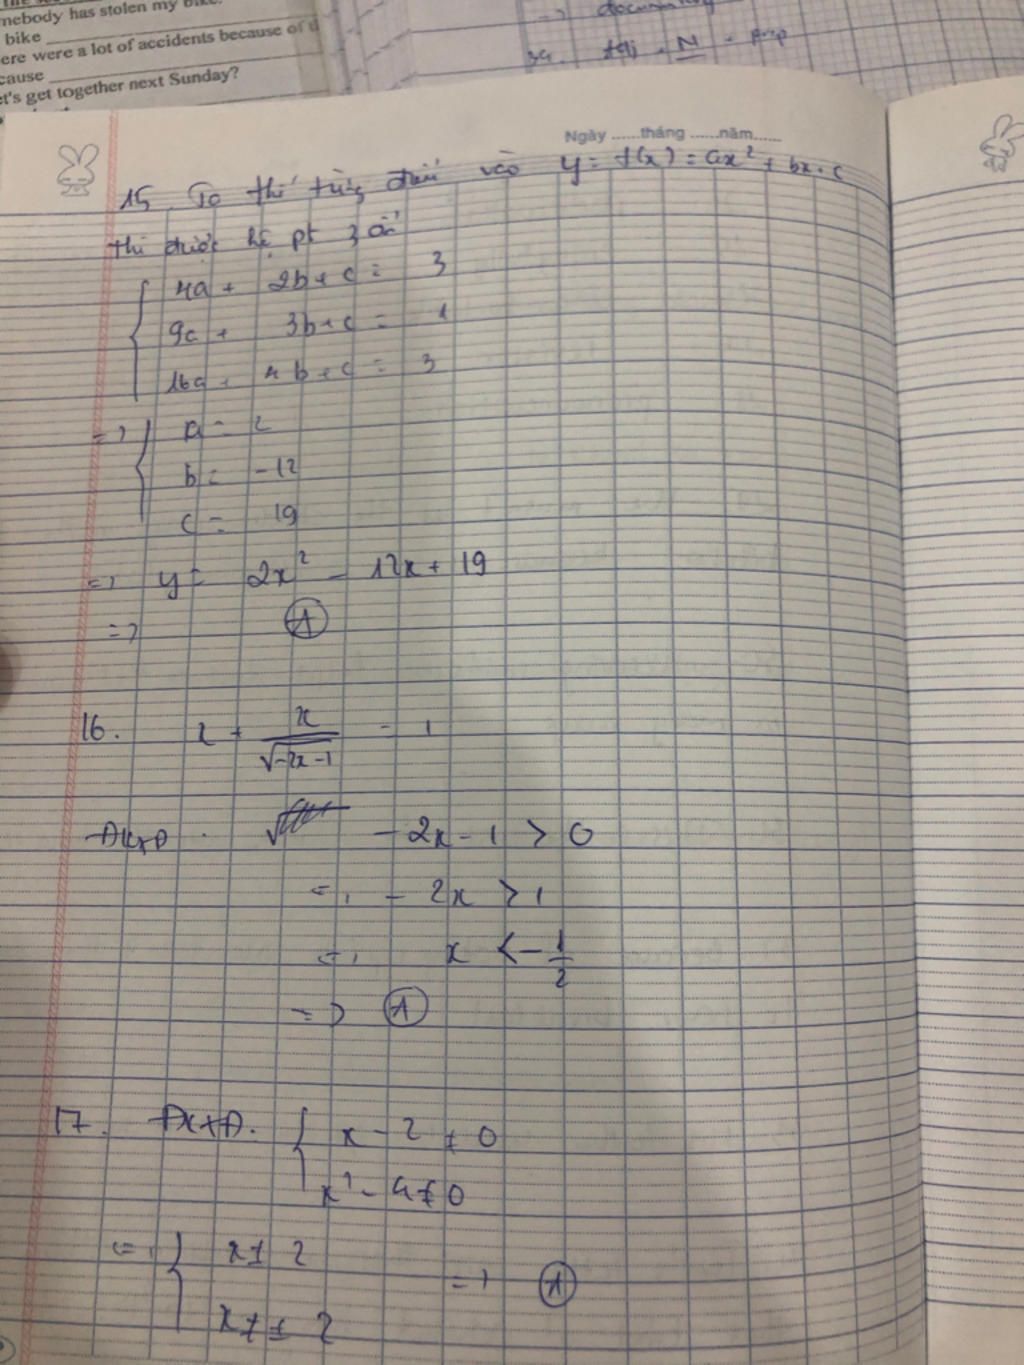 mebody has stolen my bike.
bike
ere were a lot of accidents because of
cause
et's get together next Sunday?
Ngày ......tháng ......năm......
15. Ta thế từng điểm vào y = f(x) = ax² + bx + c
thì được hệ pt 3 ẩn
4a + 2b + c = 3
9a + 3b + c = 1
16a + 4b + c = 3
=> a = 2
b = -12
c = 19
=> y = 2x² - 12x + 19
=> A
16. x + x/√-2x-1 = 1
ĐKXĐ. -2x - 1 > 0
<=> -2x > 1
<=> x < -1/2
=> A
17. ĐKXĐ. x - 2 ≠ 0
x² - 4 ≠ 0
<=> x ≠ 2
x ≠ ± 2
=> A